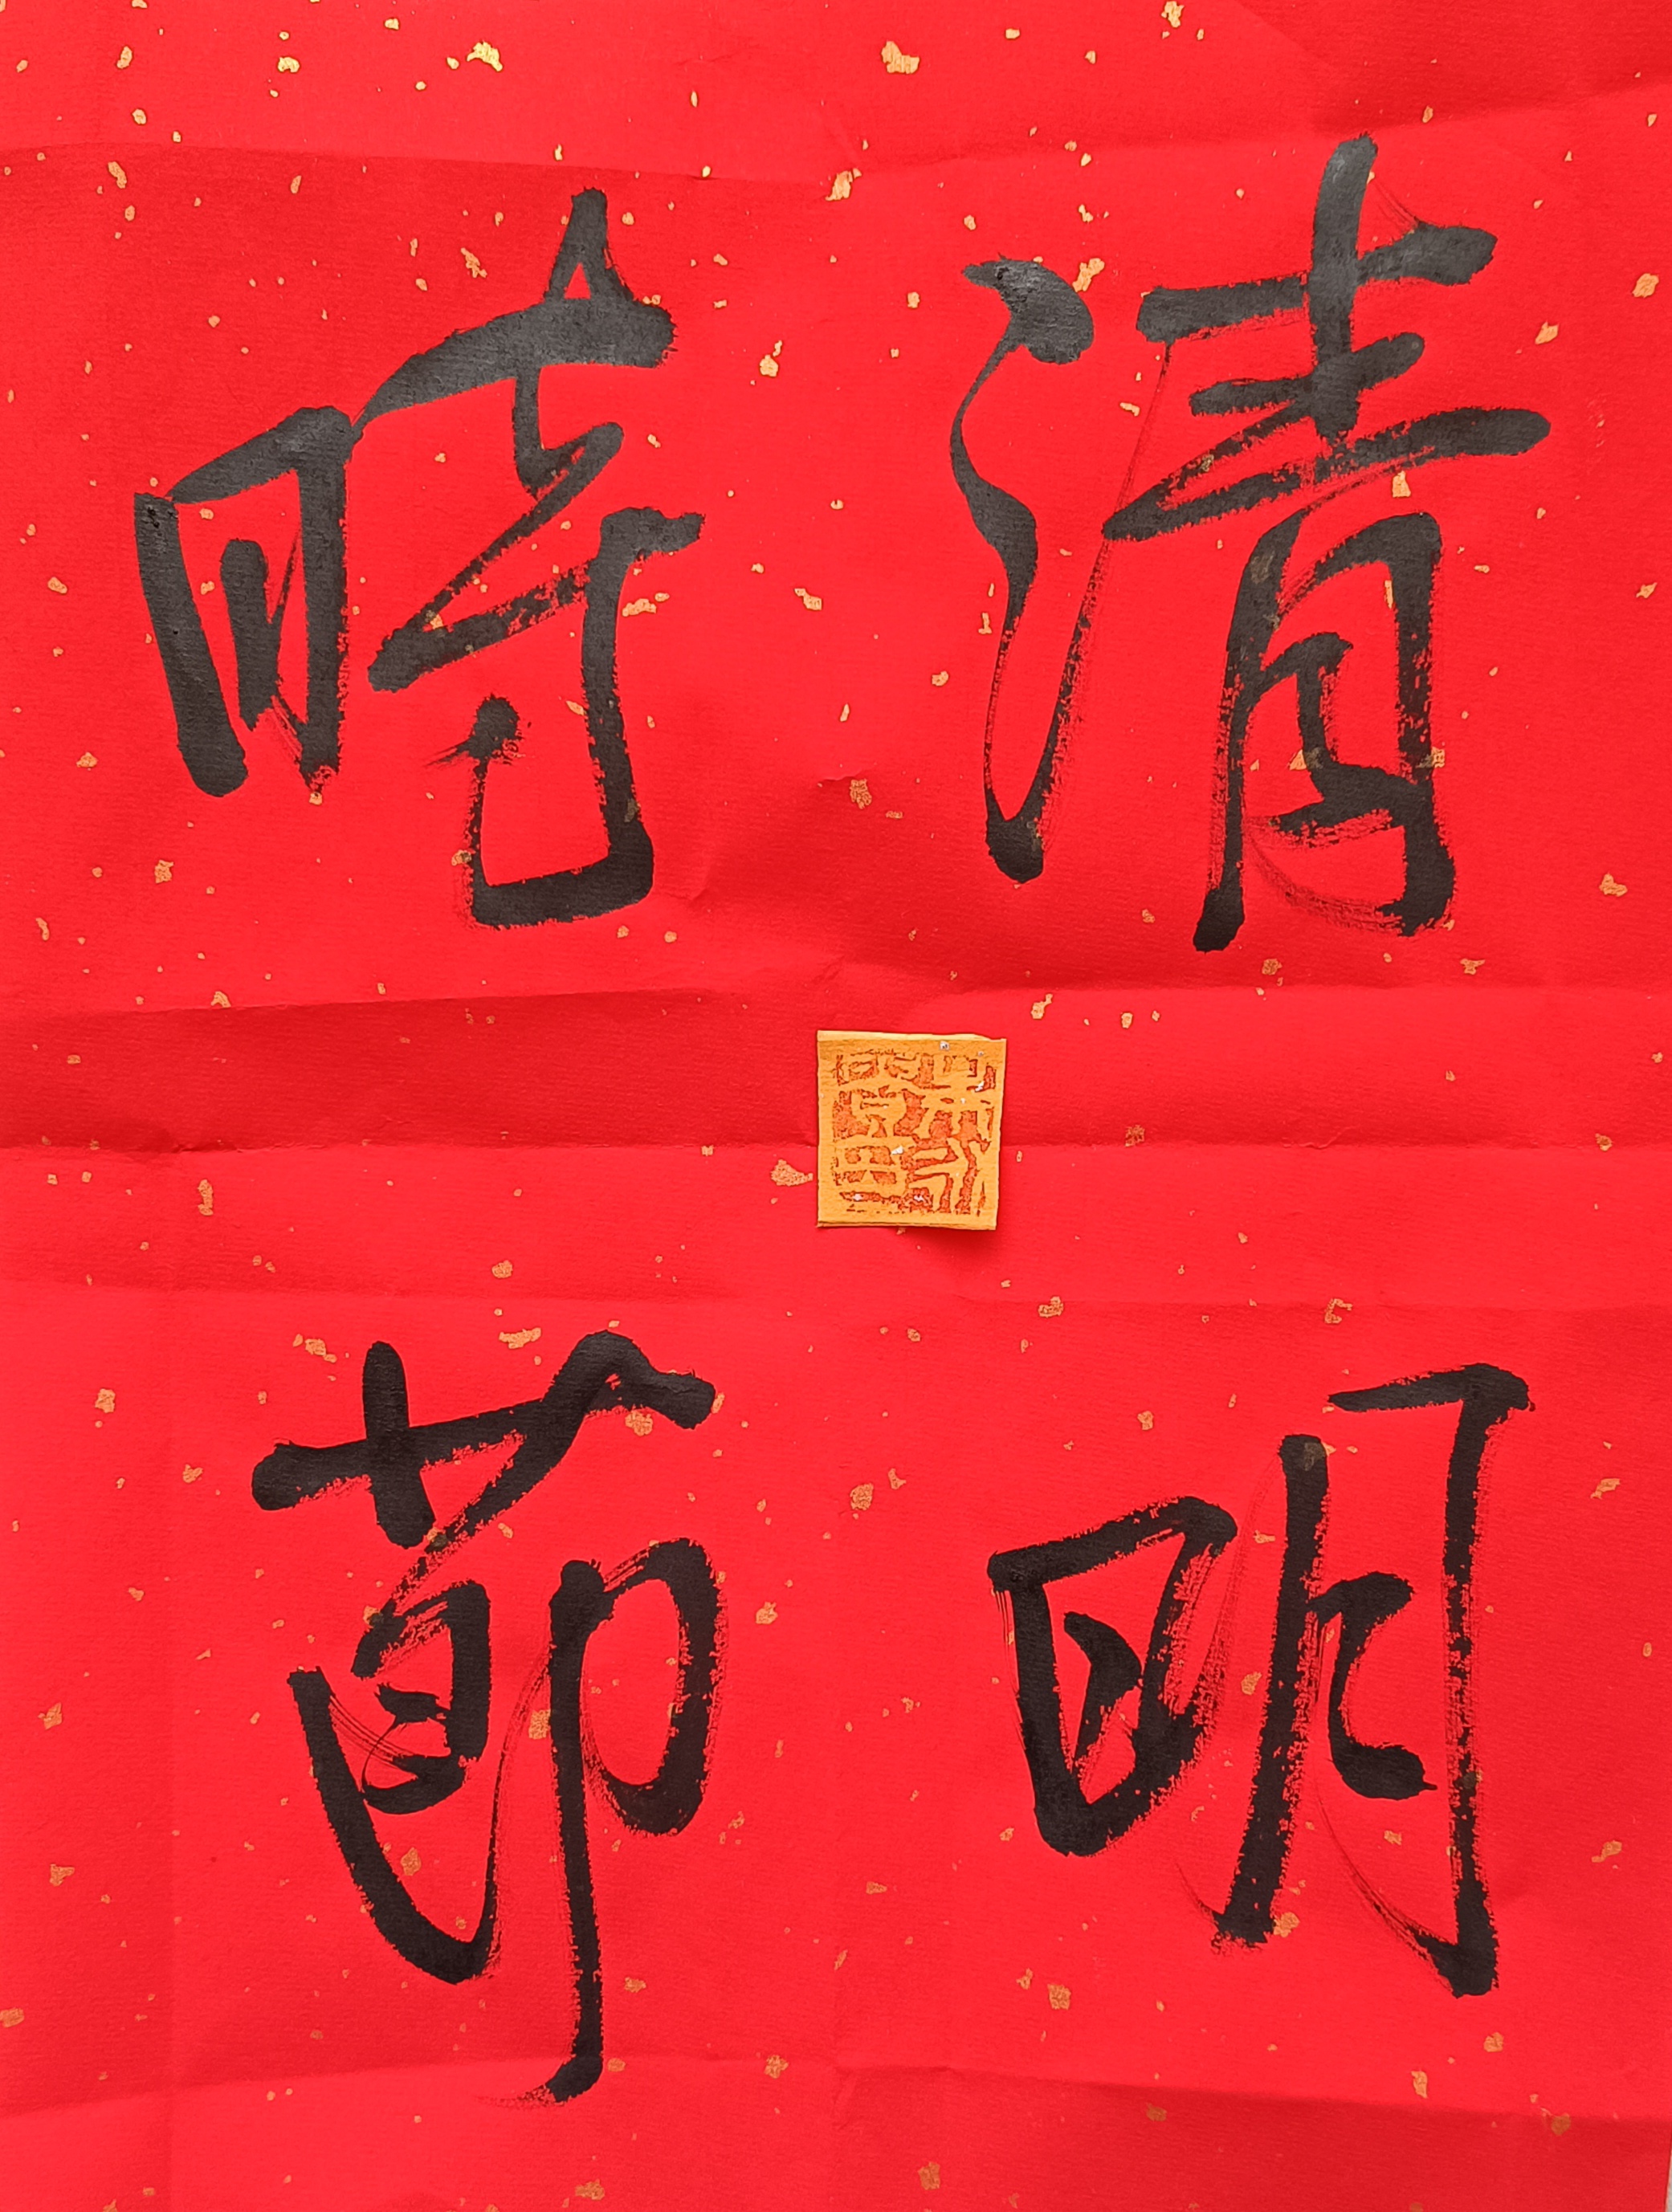 清明
時節